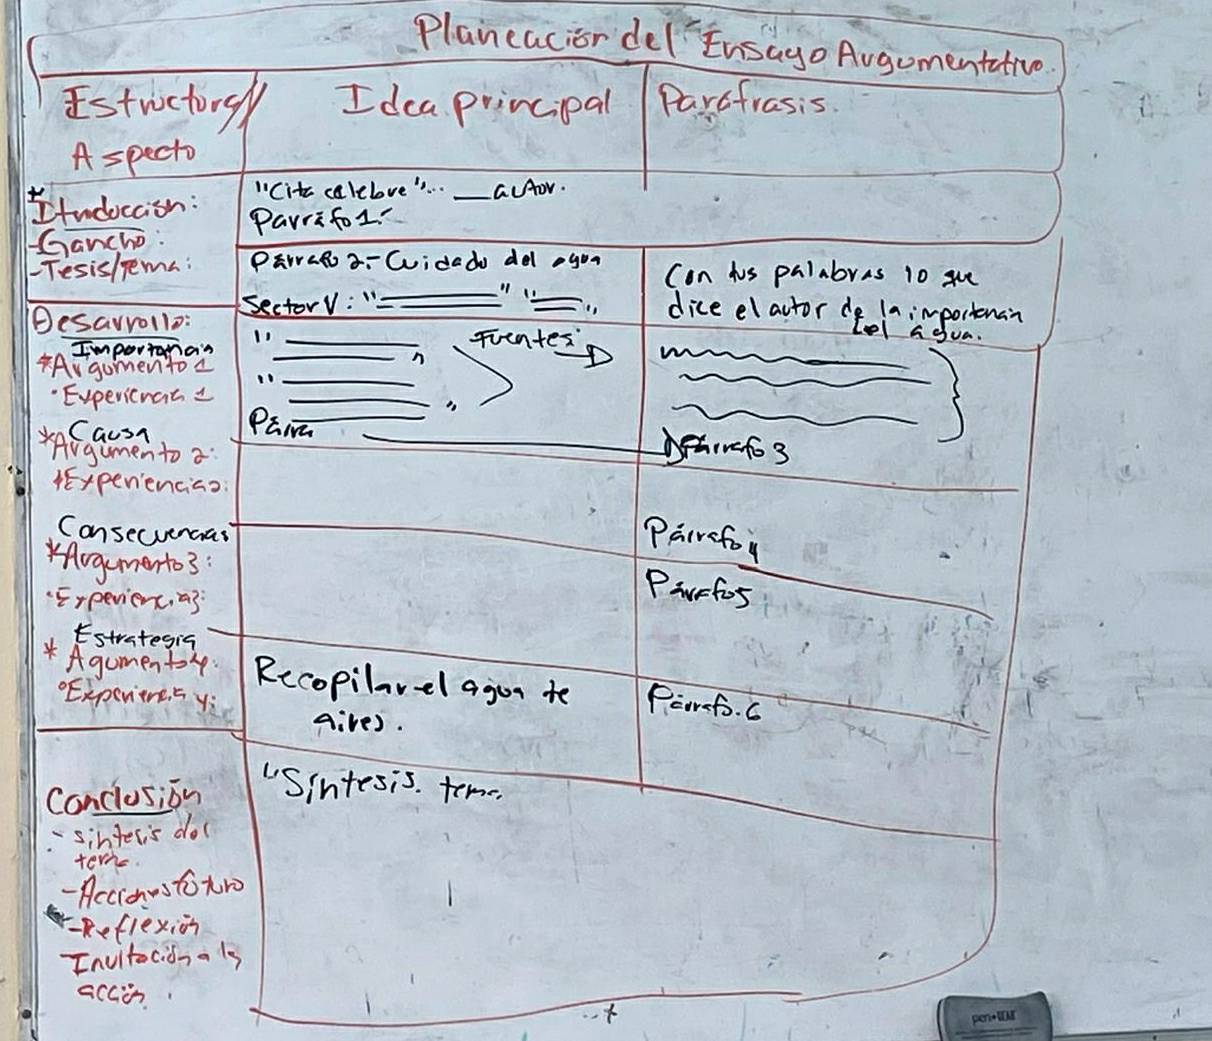 Planeación del Ensayo Argumentativo.
Estructura//
Aspecto
Idea principal
Paráfrasis.
* Itruducción:
-Gancho:
-Tesis/Tema:
"Cita celebre"... __autor.
Parráfo 1.-
Párrafo 2.- Cuidado del agua
Sector V: " " " "
Con tus palabras lo que
dice el autor de la importancia
del agua.
Desarrollo:
Importancia
*Argumento 1
·Experiencia 1
Fuentes:
Causa
*Argumento 2:
*Experiencia 2:
Párra
Párrafo 3
Consecuencias
*Argumento 3:
·Experiencia 3:
Párrafo 4
Párrafo 5
Estrategia
* Agumento 4:
°Experiencia 4:
Recopilar el agua de
aires.
Párrafo. 6
Conclusión
- síntesis del
tema.
- Acciones futuro
-Reflexión
Invitación a la
acción.
"Síntesis. tema.
pen+GEAR